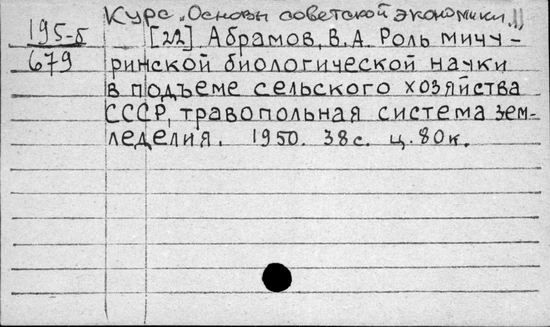 Курс „Основы советской экономики."
195-б
679
[22] Абрамов, В.А. Роль мичу-
ринской биологической науки
в подъеме сельского хозяйства
СССР, травопольная система зем-
леделия. 1950. 38с. ц. 80к.